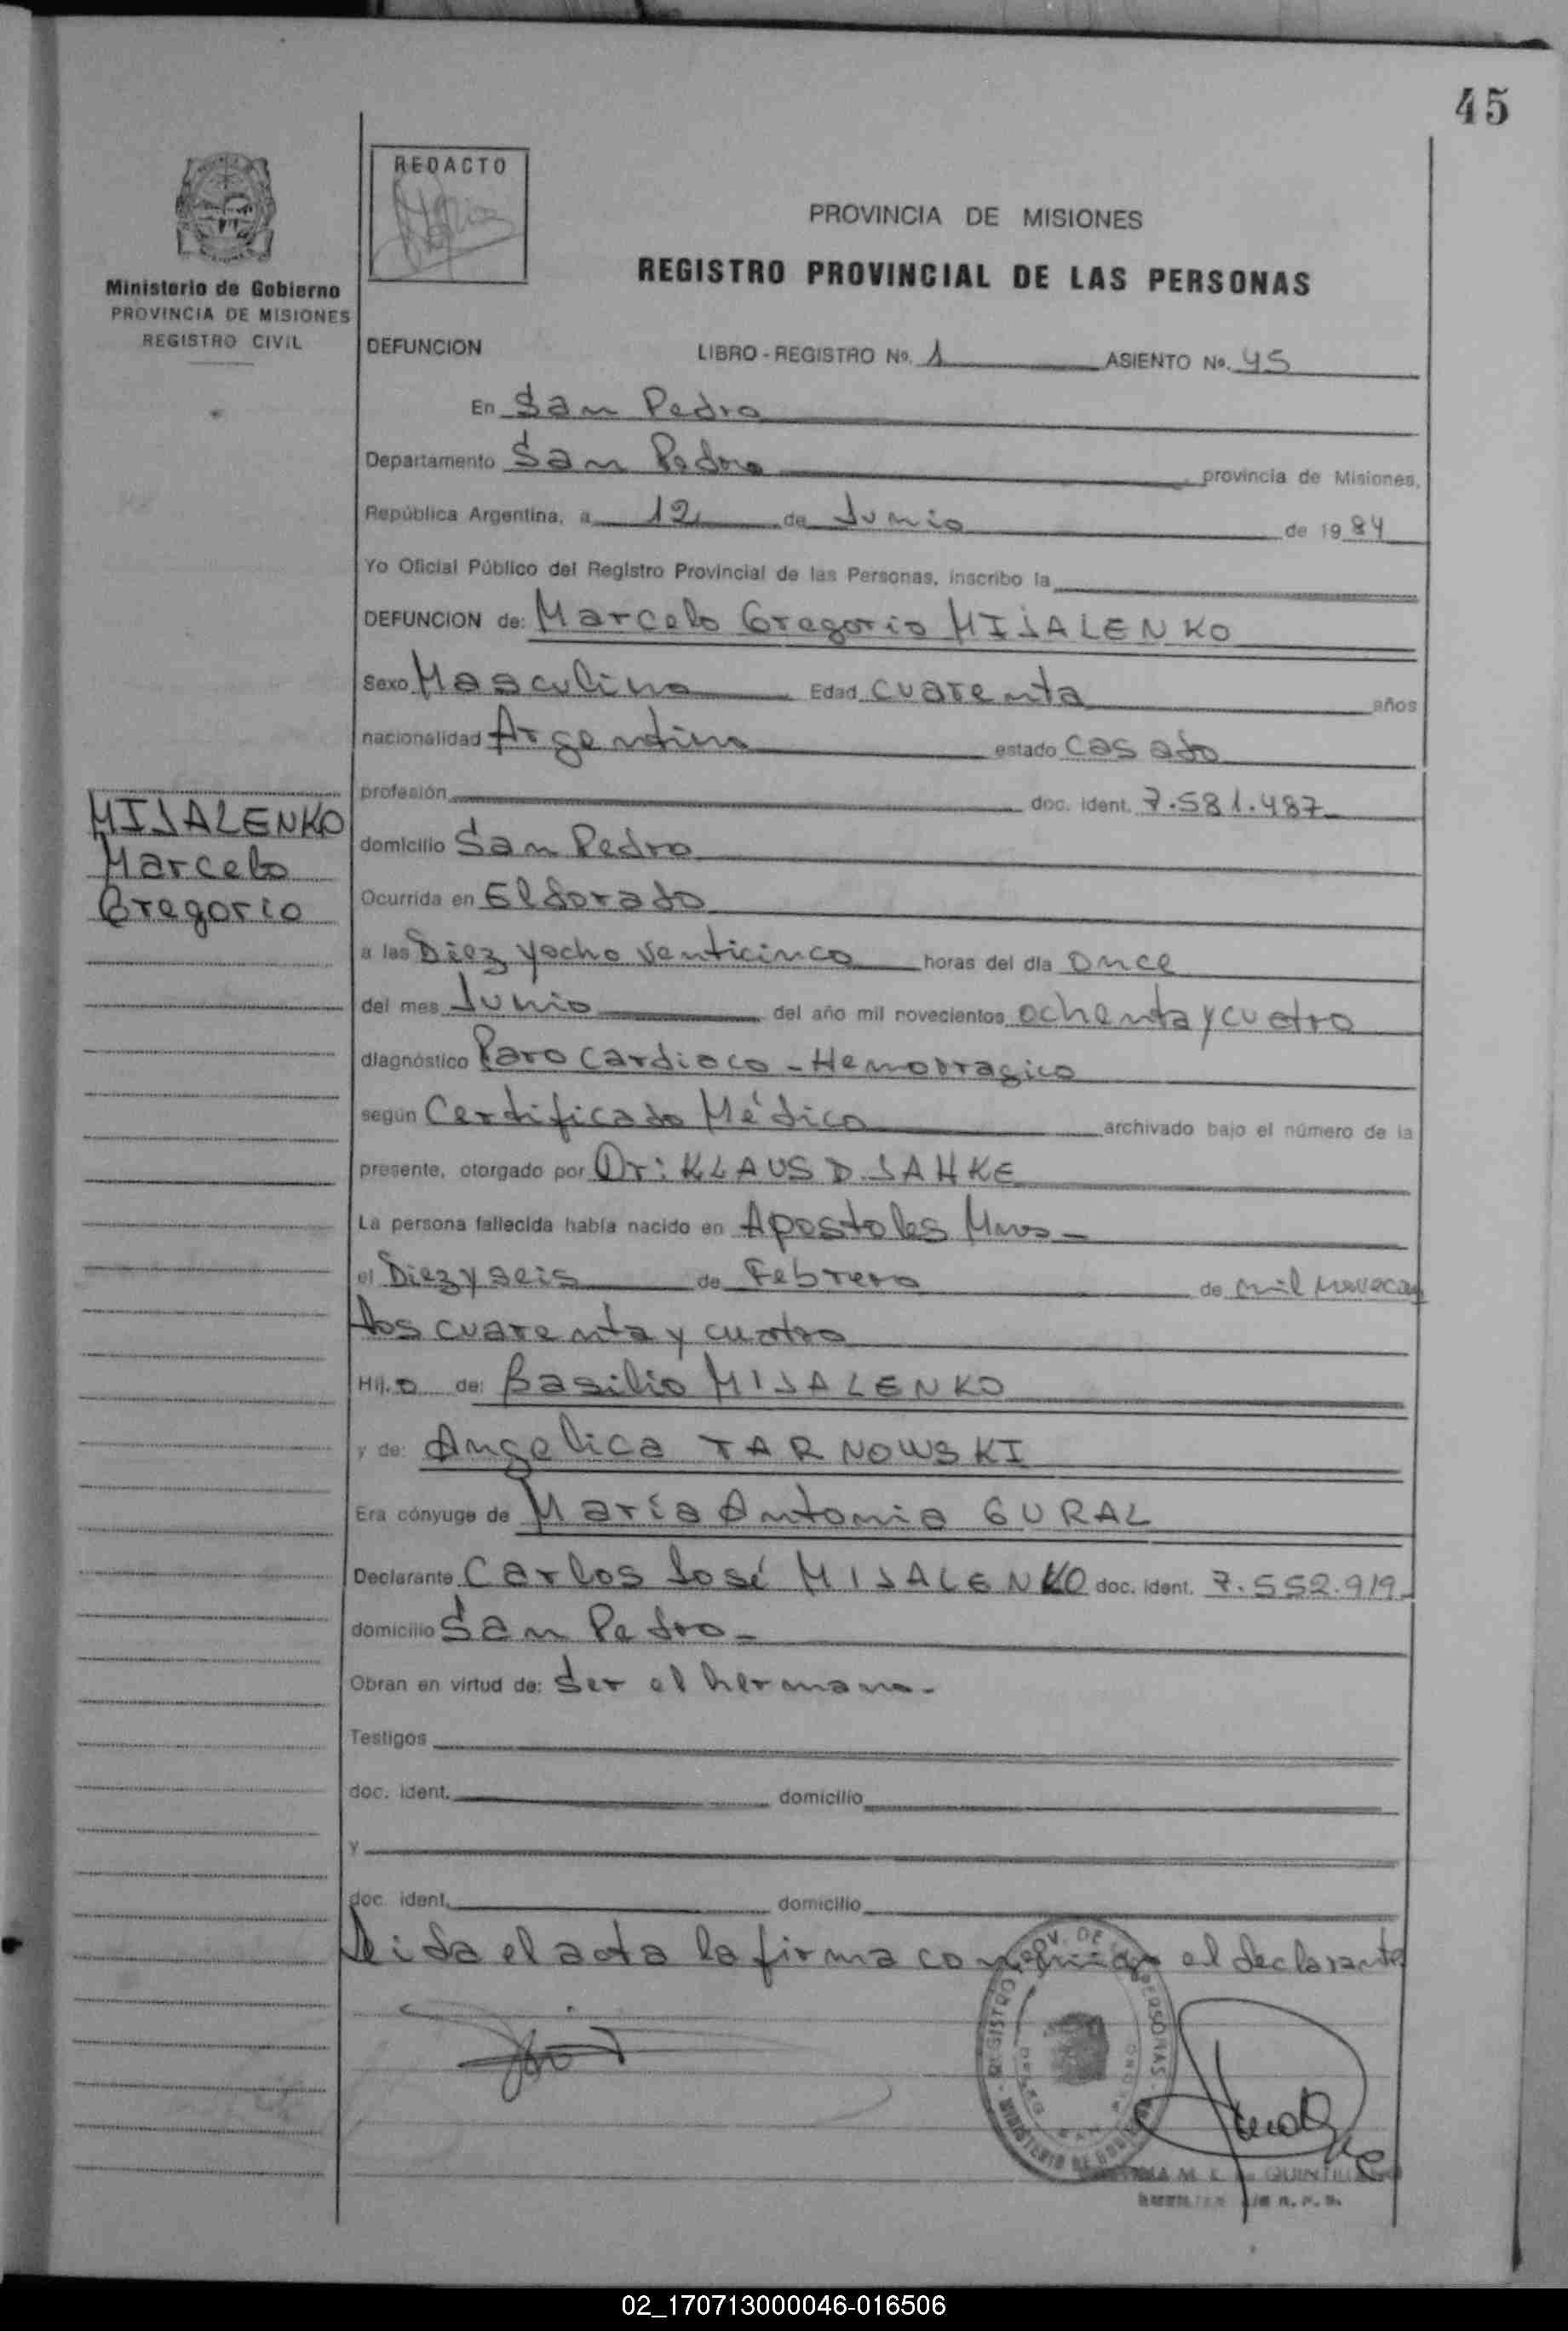 45
REDACTO
Ministerio de Gobierno
PROVINCIA DE MISIONES
REGISTRO CIVIL
PROVINCIA DE MISIONES
REGISTRO PROVINCIAL DE LAS PERSONAS
DEFUNCION LIBRO - REGISTRO Nº. 1 ASIENTO Nº. 45
En San Pedro
Departamento San Pedro provincia de Misiones,
República Argentina, a 12 de Junio de 1984
Yo Oficial Público del Registro Provincial de las Personas, inscribo la
DEFUNCION de: Marcelo Gregorio MIJALENKO
Sexo Masculino Edad cuarenta años
nacionalidad Argentino estado casado
profesión doc. ident. 7.581.487
MIJALENKO
Marcelo
Gregorio
domicilio San Pedro
Ocurrida en Eldorado
a las Diez yocho venticinco horas del día once
del mes Junio del año mil novecientos ochenta y cuatro
diagnóstico Paro cardiaco - Hemorragico
según Certificado Médico archivado bajo el número de la
presente, otorgado por Dr: KLAUS D. JAHKE
La persona fallecida había nacido en Apostoles Mnes -
el Diez y seis de Febrero de mil novecien
tos cuarenta y cuatro
Hij.o de: Basilio MIJALENKO
y de: Angelica TARNOWSKI
Era cónyuge de María Antonia GURAL
Declarante Carlos José MIJALENKO doc. ident. 7.552.919
domicilio San Pedro -
Obran en virtud de: Ser el hermano -
Testigos
doc. ident. domicilio
y
doc. ident. domicilio
Leida el acta la firma conmigo el declarante
REGISTRO PROV. DE LAS PERSONAS
MINISTERIO DE GOBIERNO
M. K. de QUINTILIANO
R. P. P.
02_170713000046-016506